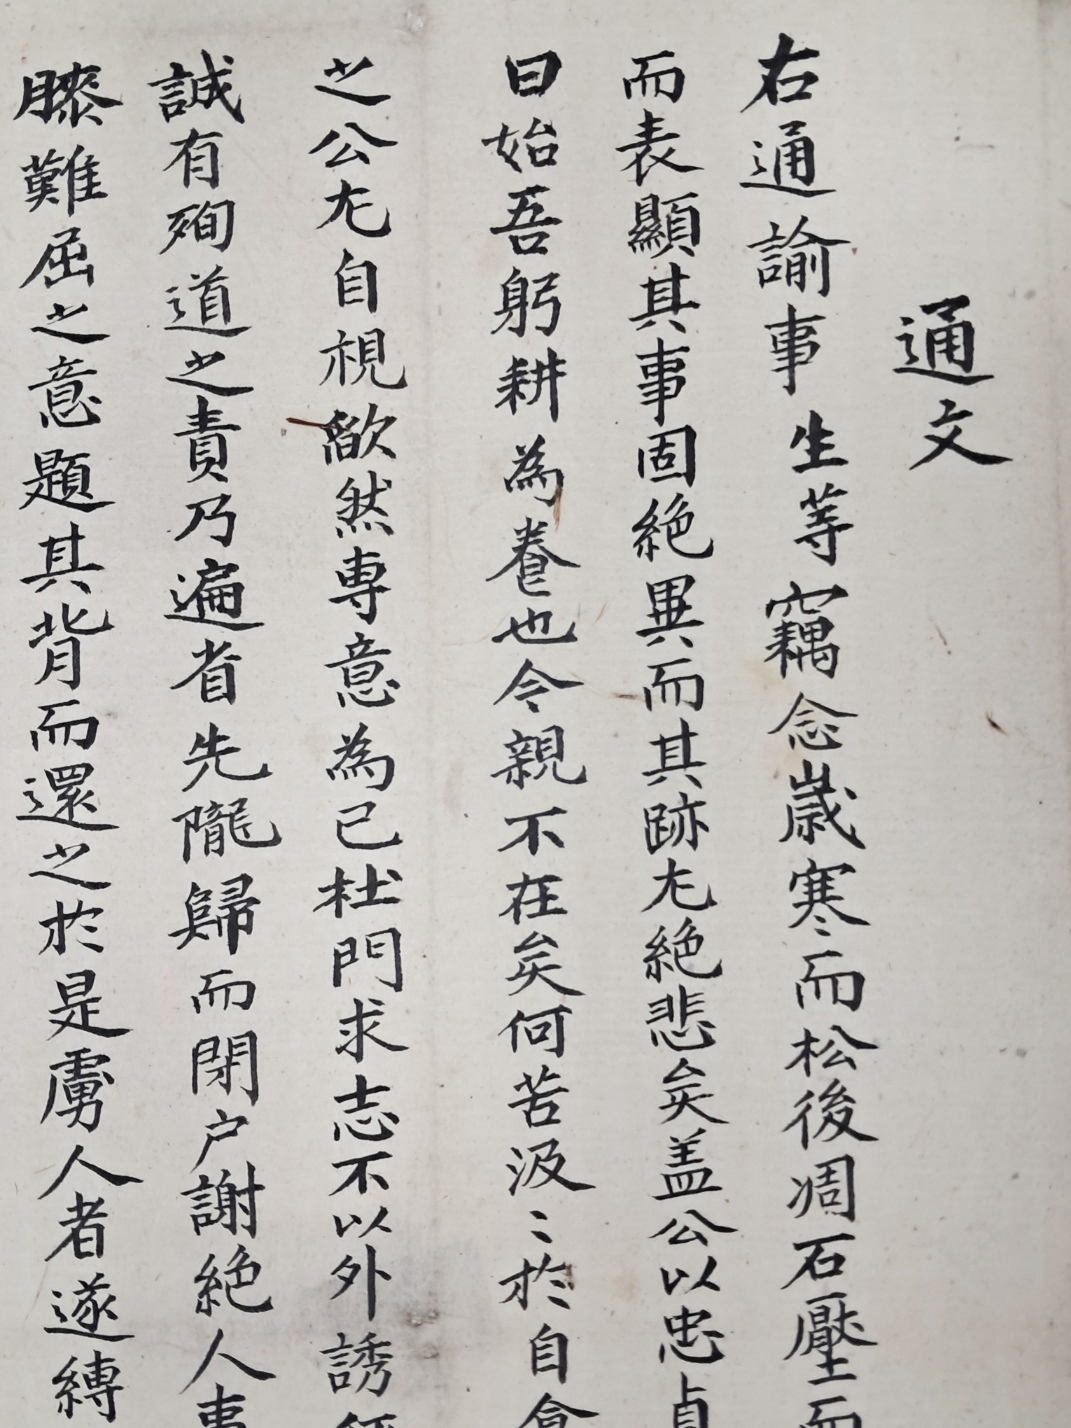 通文
右通諭事生等竊念歲寒而松後凋石壓而
而表顯其事固絶異而其跡尤絶悲矣盖公以忠貞
曰始吾躬耕為養也今親不在矣何苦汲〻於自
之公尤自視欿然專意為已杜門求志不以外誘
誠有殉道之責乃遍省先隴歸而閉户謝絶人事
膝難屈之意題其背而還之於是虜人者遂縛